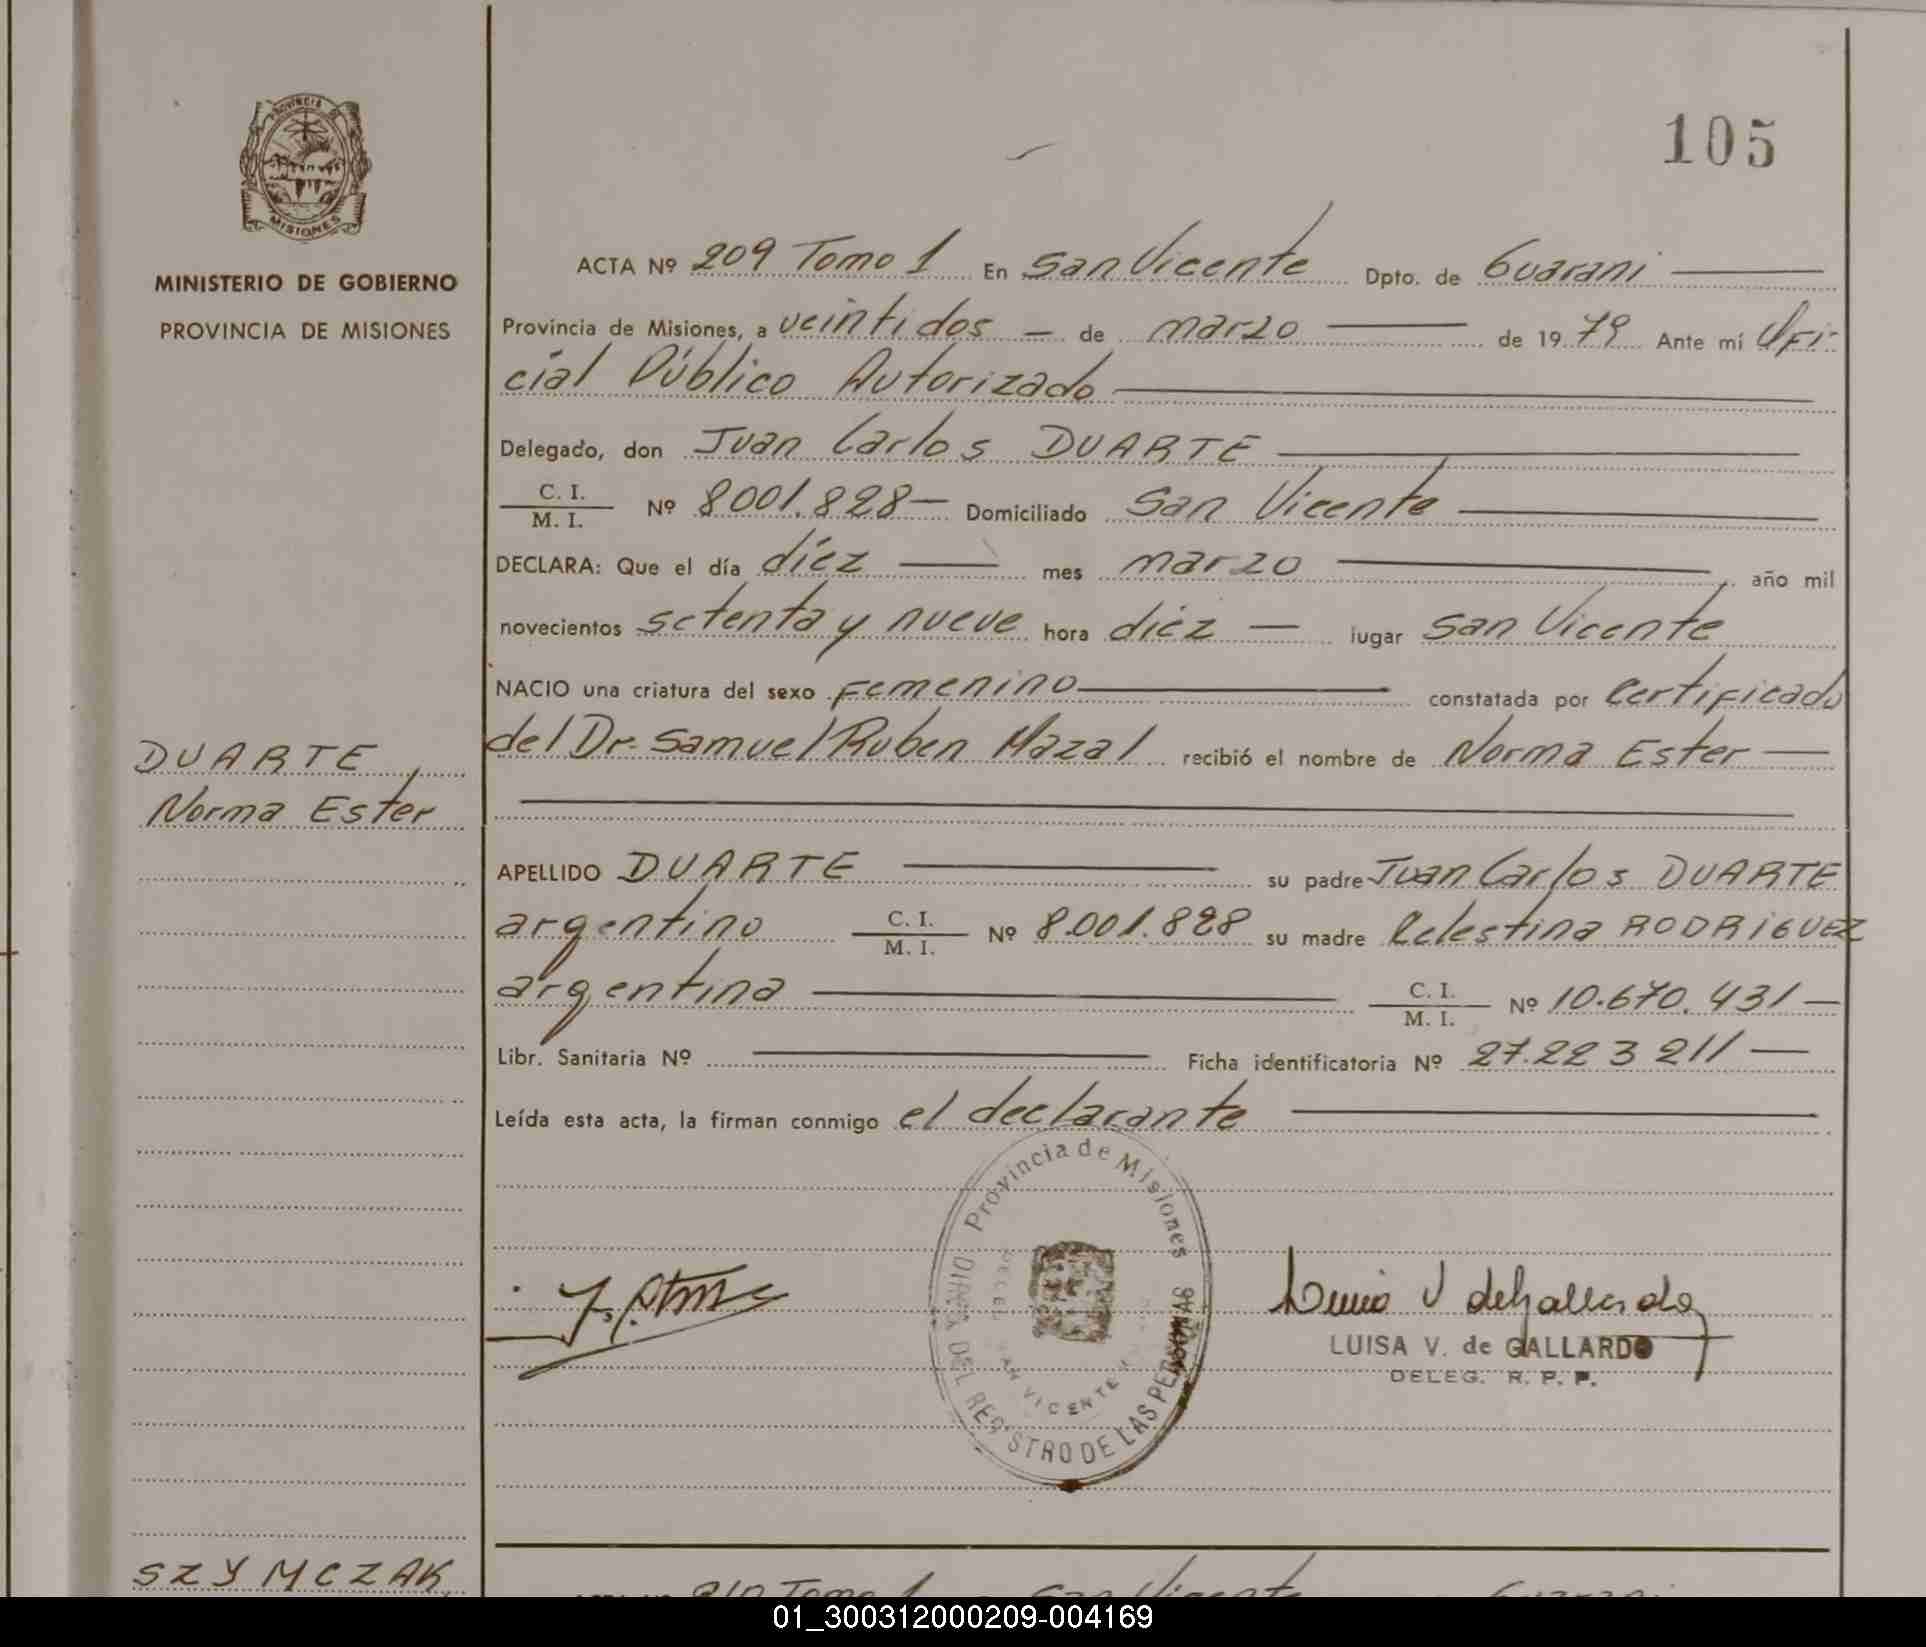 PROVINCIA DE
MISIONES
MINISTERIO DE GOBIERNO
PROVINCIA DE MISIONES
105
ACTA Nº 209 Tomo 1 En San Vicente Dpto. de Guarani
Provincia de Misiones, a veintidos — de marzo — de 19 79 Ante mí Ofi-
cial Público Autorizado —
Delegado, don Juan Carlos DUARTE —
C. I.
M. I. Nº 8001.828 — Domiciliado San Vicente —
DECLARA: Que el día diez — mes marzo — , año mil
novecientos setenta y nueve hora diez — lugar San Vicente
NACIO una criatura del sexo Femenino — constatada por Certificado
del Dr. Samuel Ruben Mazal recibió el nombre de Norma Ester —
DUARTE,
Norma Ester
APELLIDO DUARTE — su padre Juan Carlos DUARTE
argentino C. I.
M. I. Nº 8.001.828 su madre Celestina RODRIGUEZ
argentina — C. I.
M. I. Nº 10.670.431 —
Libr. Sanitaria Nº — Ficha identificatoria Nº 27.223 211 —
Leída esta acta, la firman conmigo el declarante —
Provincia de Misiones
DEL REGISTRO DE LAS PERSONAS
VICENTE
Luisa V de Gallardo
LUISA V. de GALLARDO
DELEG. R. P. P.
SZYMCZAK
210 Tomo 1 San Vicente Guarani
01_300312000209-004169